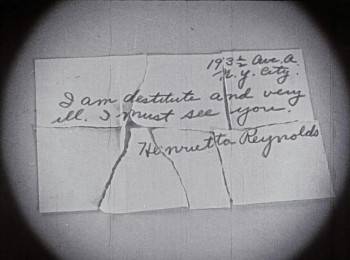 193½ Ave. A.
N.Y. City.
I am destitute and very
ill. I must see you.
Henrietta Reynolds